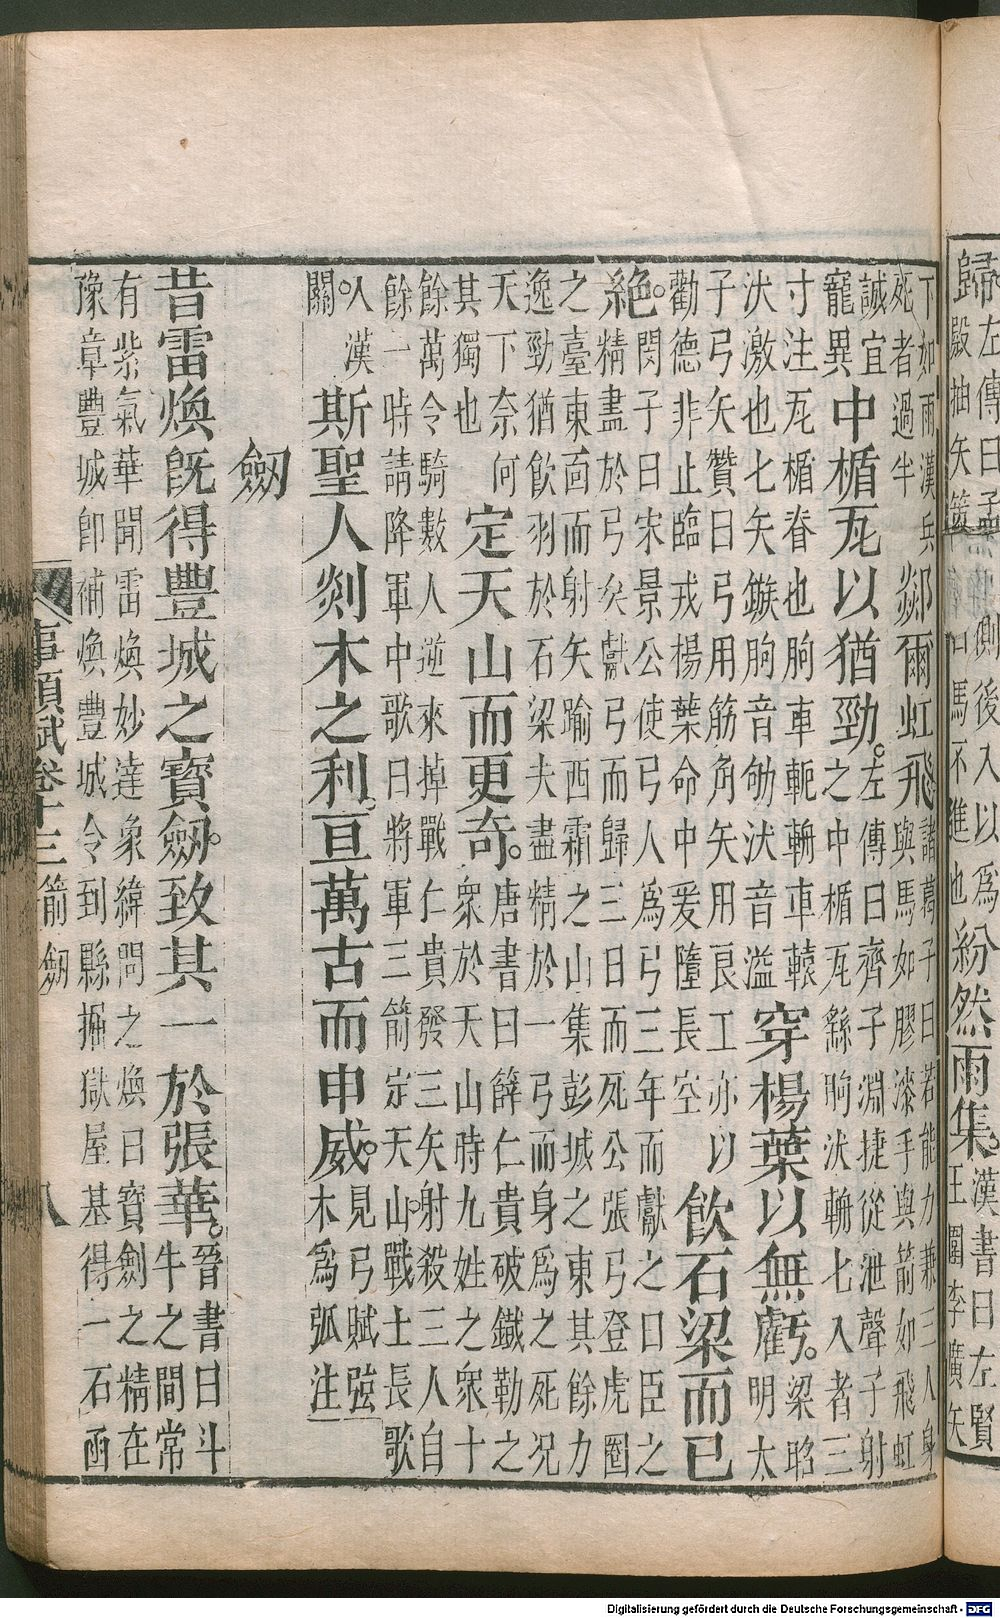 歸。左傳曰孟 側後入以爲
殿抽矢策 曰馬不進也
紛然雨集。漢書曰左賢
王圍李廣矢
下如雨漢兵
死者過半
爾虹飛諸葛子曰若能力兼三人身
與馬如膠漆手與箭如飛虹
誠宜
寵異
中楯瓦以猶勁。左傳曰齊子淵捷從泄聲子射
之中楯瓦繇朐汏輈匕入者三
寸注瓦楯脊也朐車軛輈車轅
汏激也匕矢鏃朐音劬汏音溢
穿楊葉以無虧。梁昭
明太
子弓矢贊曰弓用筋角矢用良工亦以
勸德非止臨戎楊葉命中爰墮長空
飲石梁而已
絕。闞子曰宋景公使弓人爲弓三年而獻之曰臣之
精盡於弓矣獻弓而歸三日而死公張弓登虎圈
之臺東面而射矢踰西霜之山集彭城之東其餘力
逸勁猶飲羽於石梁夫盡精於一弓而身爲之死况
天下奈何
其獨也
定天山而更奇。唐書曰薛仁貴破鐵勒之
衆於天山時九姓之衆十
餘萬令騎數人逆來掉戰仁貴發三矢射殺三人自
餘一時請降軍中歌曰將軍三箭定天山。戰士長歌
入漢
關。
斯聖人剡木之利。亘萬古而申威。見弓賦弦
木爲弧注
劔
昔雷煥旣得豐城之寳劔。致其一於張華。晉書曰斗
牛之間常
有紫氣華聞雷煥妙達象緯問之煥曰寳劍之精在
豫章豐城卽補煥豐城令到縣掘獄屋基得一石函
事類賦卷十三 箭劔 八
Digitalisierung gefördert durch die Deutsche Forschungsgemeinschaft - DFG